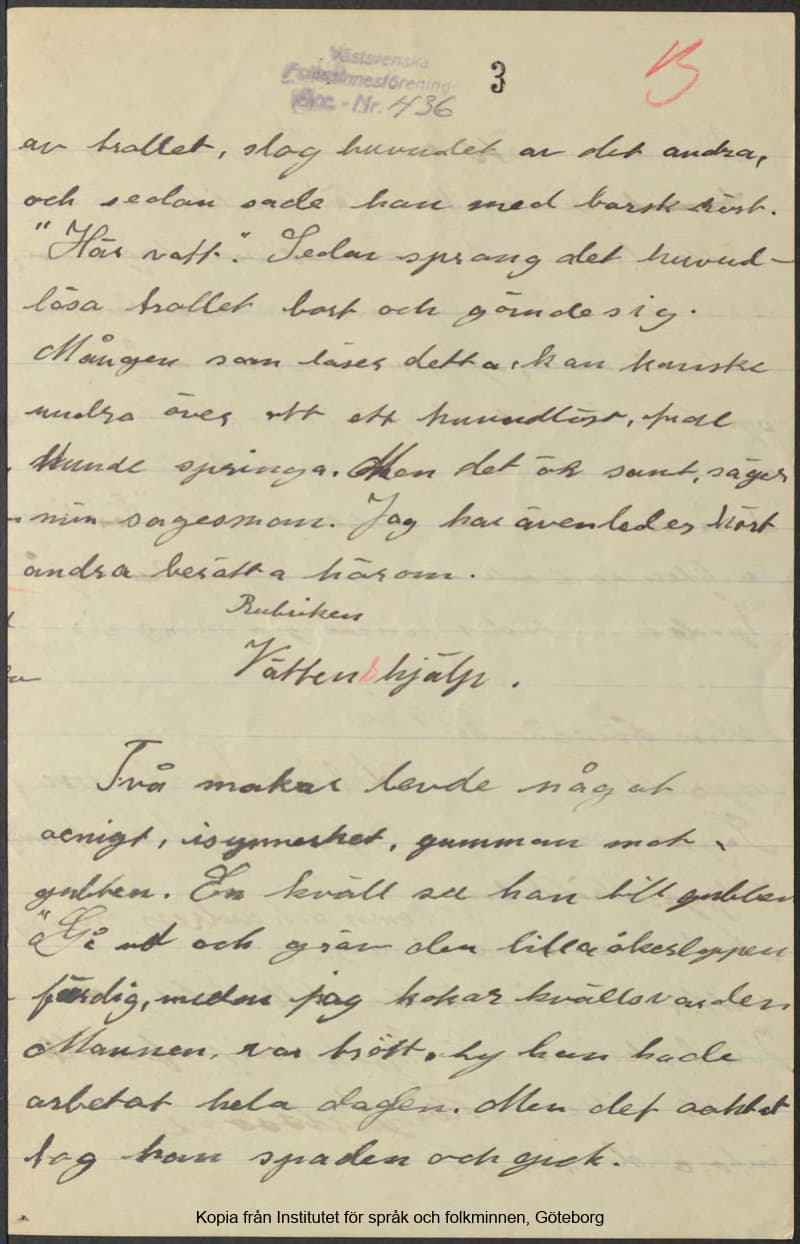 Västsvenska
Folkminnesförening
Acc. - Nr. 436
3
B
av trollet, slog huvudet av det andra,
och sedan sade han med barsk röst.
"Här vatt". Sedan sprang det huvud-
lösa trollet bort och gömde sig.
Mången som läser detta, kan kanske
undra över att ett huvudlöst,
kunde springa. Men det är sant, säger
min sagesman. Jag har ävenledes hört
andra berätta härom.
Rubriken
Vättens hjälp.
Två makar levde något
oenigt, isynnerhet, gumman mot
gubben. En kväll sa han till gubben
"Gå ut och gräv den lilla åkerlappen
färdig, medan jag kokar kvällsvarden
Mannen, var trött, ty han hade
arbetat hela dagen. Men det oaktat
tog han spaden och gick.
Kopia från Institutet för språk och folkminnen, Göteborg